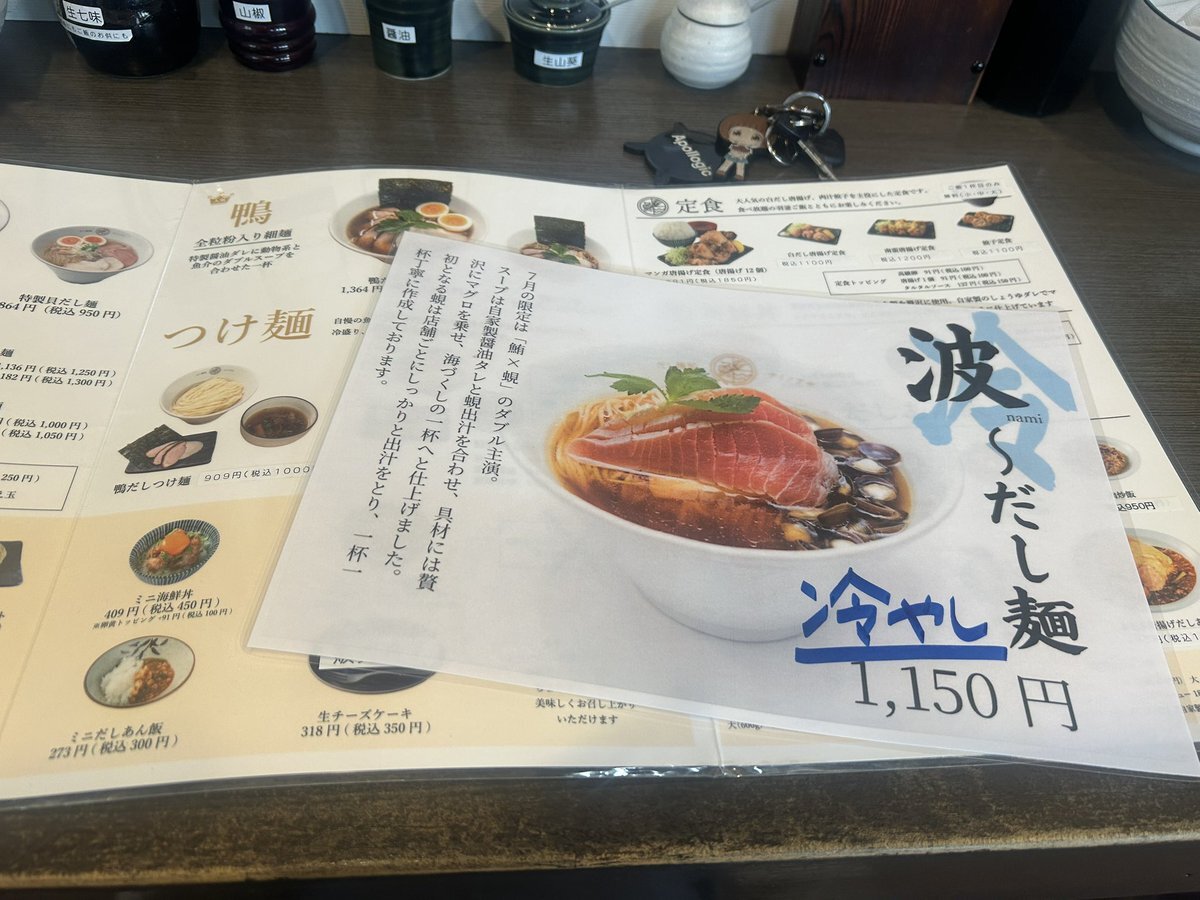 生七味
山椒
醤油
生山葵
Apollogic
鴨
全粒粉入り細麺
特製醤油ダレに動物系と
魚介のダブルスープを
合わせた一杯
1,364
特製貝だし麺
864円(税込 950円)
1,136円(税込 1,250円)
182円(税込 1,300円)
円(税込 1,000円)
(税込 1,050円)
つけ麺
自慢の魚
冷盛り、
鴨だしつけ麺
909円(税込1000
ミニ海鮮丼
409円(税込 450円)
※卵黄トッピング +91円(税込 100円)
ミニだしあん飯
273円(税込 300円)
生チーズケーキ
318円(税込 350円)
美味しくお召し上がり
いただけます
定食
大人気の白だし唐揚げ、肉汁餃子を主役にした定食です。
マンガ唐揚げ定食(唐揚げ12個)
白だし唐揚げ定食
税込1100円
南蛮唐揚げ定食
税込1200円
餃子定食
税込1100円
定食トッピング
タルタルソース
波
nami
〜だし麺
冷
冷やし
1,150円
7月の限定は「鮪×蜆」のダブル主演。
スープは自家製醤油タレと蜆出汁を合わせ、具材には贅
沢にマグロを乗せ、海づくしの一杯へと仕上げました。
初となる蜆は店舗ごとにしっかりと出汁をとり、一杯一
杯丁寧に作成しております。